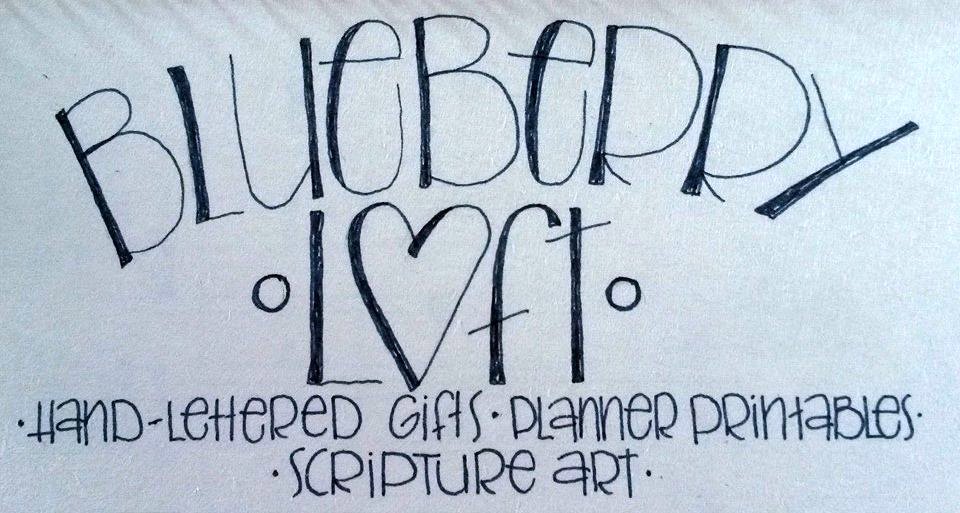 BLUEBERRY
L♡FT
·HAND-LETTERED GIFTS·PLANNER PRINTABLES·
·SCRIPTURE ART·